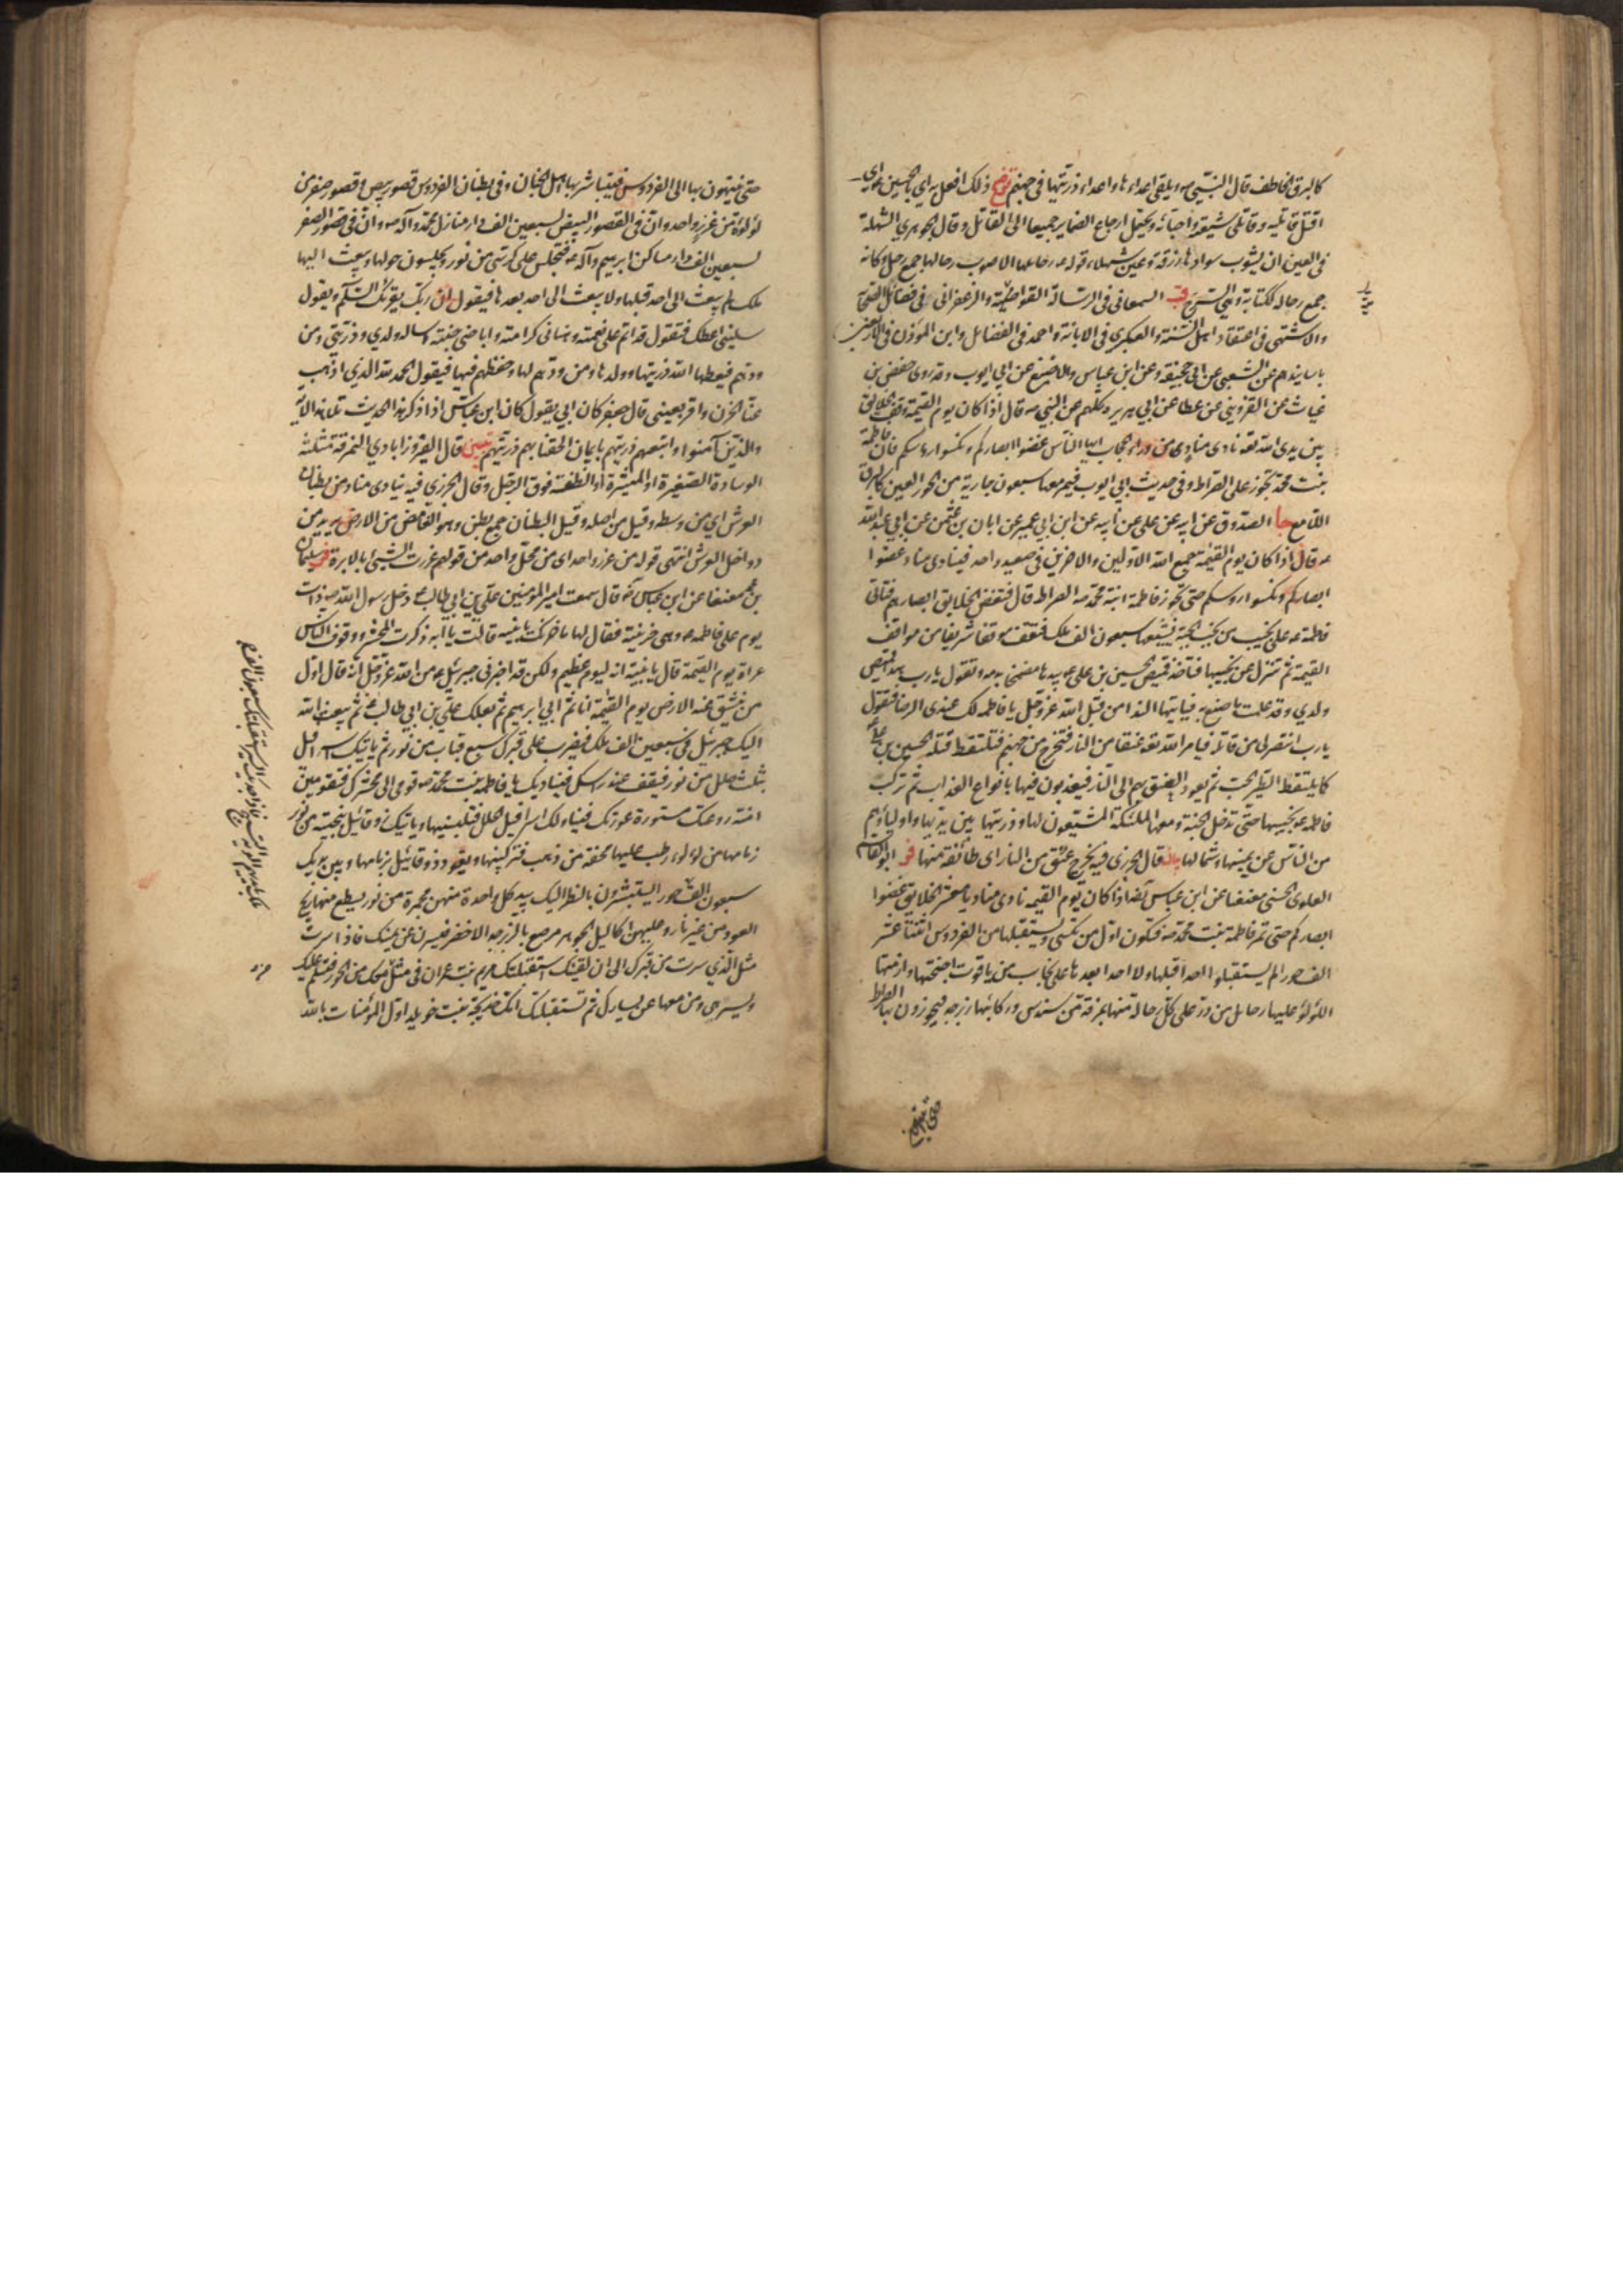 كالبرق الخاطف قال النبي ص ويلقى اعداءها واعداء ذريتها في جهنم توضيح ذلك افعل به اي بالحسين ع و اي
اقتل قاتليه وقاتلى شيعته واحبائه ويحتمل ارجاع الضماير جميعا الى القاتل وقال الجوهري الشهلة
في العين ان يشوب سوادها زرقة وعين شهلاء قوله ع رحايلها الاصوب رحالها جمع رحل وكانه
جمع رحالة ككتابة وهي السرج قب السمعاني في الرسالة القوامية والزعفراني في فضائل الصحابة
والاشنهي في اعتقاد اهل السنة والعكبري في الابانة واحمد في الفضائل وابن المؤذن في الاربعين
باسانيدهم عن الشعبي عن ابي جحيفة وعن ابن عباس والاصبغ عن ابي ايوب وقد روى حفص بن
غياث عن القزويني عن عطا عن ابي هريرة كلهم عن النبي ص قال اذا كان يوم القيمة ووقف الخلايق
بين يدى الله تعه نادى مناد من وراء الحجاب ايها الناس غضوا ابصاركم ونكسوا رءوسكم فان فاطمة
بنت محمد تجوز على الصراط وفي حديث ابي ايوب فيمر معها سبعون جارية من الحور العين كالبرق
اللامع جا الصدوق عن ابيه عن علي عن ابيه عن ابن ابي عمير عن ابان بن عثمن عن ابي عبد الله
ع قال اذا كان يوم القيمة جمع الله الاولين والاخرين في صعيد واحد فينادى مناد غضوا
ابصاركم ونكسوا رؤسكم حتى تجوز فاطمة ابنة محمد ص الصراط قال فتغض الخلايق ابصارهم فتاتي
فاطمة ع على نجيب من نجب الجنة يشيعها سبعون الف ملك فتقف موقفا شريفا من مواقف
القيمة ثم تنزل عن نجيبها فتاخذ قميص الحسين بن علي ع بيدها مضمخا بدمه وتقول يا رب هذا قميص
ولدي وقد علمت ما صنع به فياتيها الندا من قبل الله عز وجل يا فاطمة لك عندي الرضا فتقول
يا رب انتصر لي من قاتله فيامر الله تعه عنقا من النار فتخرج من جهنم فتلتقط قتلة الحسين بن علي ع
كما يلتقط الطير الحب ثم يعود العنق بهم الى النار فيعذبون فيها بانواع العذاب ثم تركب
فاطمة ع نجيبها حتى تدخل الجنة ومعها الملئكة المشيعون لها وذريتها بين يديها واولياؤهم
من الناس عن يمينها وشمالها بيان قال الجزري فيه يخرج عنق من النار اى طائفة منها فر ابو القاسم
العلوي الحسني معنعنا عن ابن عباس رضه اذا كان يوم القيمة نادى مناد يا معشر الخلايق غضوا
ابصاركم حتى تمر فاطمة بنت محمد ص فتكون اول من تكسى ويستقبلها من الفردوس اثنتا عشر
الف حوراء لم يستقبلوا احدا قبلها ولا احدا بعدها على نجايب من ياقوت اجنحتها وازمتها
اللؤلؤ عليها رحايل من در على كل رحالة منها نمرقة من سندس وركابها زبرجد فيجوزون بها الصراط
حتى ينتهون
حتى ينتهون بها الى الفردوس فيتباشر بها اهل الجنان وفي بطنان الفردوس قصور بيض وقصور صفر من
لؤلؤة من غرز واحد وان في القصور البيض لسبعين الف دار منازل محمد وآله ص وان في القصور الصفر
لسبعين الف دار مساكن ابرهيم وآله ع فتجلس على كرسي من نور ويجلسون حولها ويبعث اليها
ملك لم يبعث الى احد قبلها ولا يبعث الى احد بعدها فيقول ان ربك يقرئك السلم ويقول
سليني اعطك فتقول قد اتم علي نعمته وهناني كرامته واباحني جنته اساله ولدي وذريتي ومن
ودهم فيعطيها الله ذريتها وولدها ومن ودهم لها وحفظهم فيها فيقول الحمد لله الذي اذهب
عنا الحزن واقر بعيني قال جعفر كان ابي يقول كان ابن عباس اذا ذكر هذا الحديث تلا هذه الآية
والذين آمنوا واتبعهم ذريتهم بايمان الحقنا بهم ذريتهم تبيين قال الفيروزابادي النمرقة مثلثة
الوسادة الصغيرة او الميثرة او الطنفسة فوق الرحل وقال الجزري فيه ينادى مناد من بطنان
العرش اي من وسطه وقيل من اصله وقيل البطنان جمع بطن وهو الغامض من الارض يريد من
دواخل العرش انتهى قوله من غرز واحد اى من محل واحد من قولهم غرزت الشيئ بالابرة فر سليمان
بن محمد معنعنا عن ابن عباس رضه قال سمعت امير المؤمنين علي بن ابي طالب ع دخل رسول الله ص ذات
يوم على فاطمه ع وهي حزينة فقال لها ما حزنك يا بنية قالت يا ابه ذكرت المحشر ووقوف الناس
عراة يوم القيمة قال يا بنية انه ليوم عظيم ولكن قد اخبرني جبرئيل ع من الله عز وجل انه قال اول
من ينشق عنه الارض يوم القيمة انا ثم ابي ابرهيم ثم بعلك علي بن ابي طالب ع ثم يبعث الله
اليك جبرئيل في سبعين الف ملك فيضرب على قبرك سبع قباب من نور ثم ياتيك اسرافيل
بثلث حلل من نور فيقف عند راسك فيناديك يا فاطمة بنت محمد ص قومي الى محشرك فتقومين
امنة روعتك مستورة عورتك فيناولك اسرافيل الحلل فتلبسينها وياتيك زوقائيل بنجيبة من نور
زمامها من لؤلؤ رطب عليها محفة من ذهب فتركبينها ويقود زوقائيل بزمامها وبين يديك
سبعون الف حور يستبشرون بالنظر اليك بيد كل واحدة منهن مجمرة من نور يسطع منها ريح
العود من غير نار وعليهن اكاليل الجوهر مرصع بالزبرجد الاخضر فيسرن عن يمينك فاذا سرت
مثل الذي سرت من قبرك الى ان لقينك استقبلتك مريم بنت عمران في مثل من معك من الحور فتسلم عليك
وتسير هي ومن معها عن يسارك ثم تستقبلك امك خديجة بنت خويلد اول المؤمنات بالله